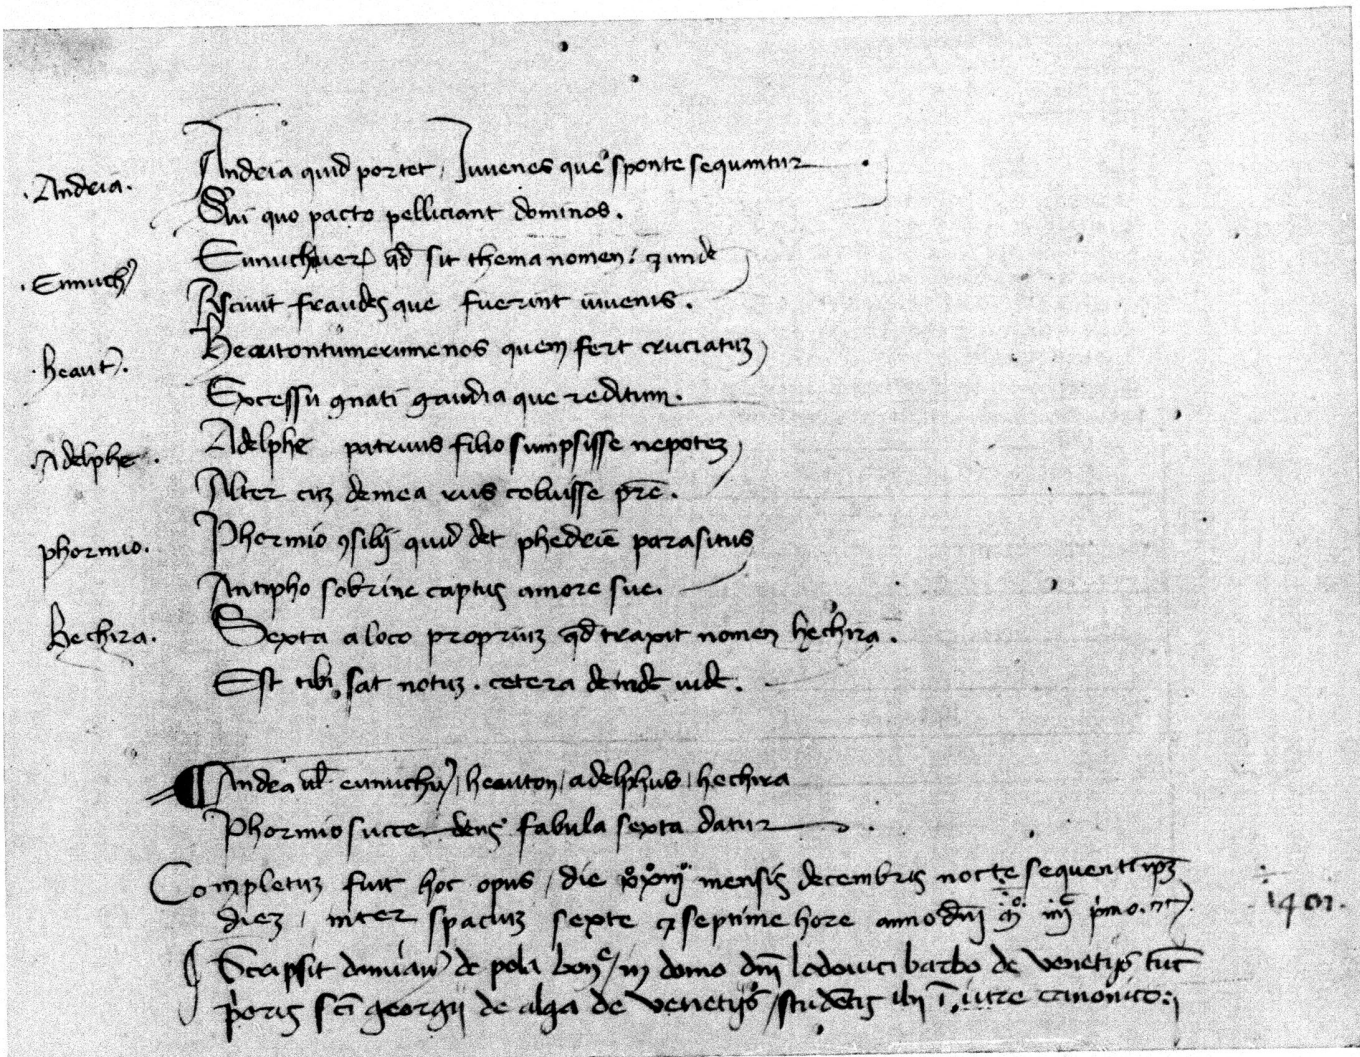 .Andria. Andria quid portet, Iuvenes que sponte sequantur.
Qui quo pacto pelliciant dominos.
.Eunuch9 qd sit thema nomen: ⁊ unde
Asciuit fraudes que fuerint iuuenis.
.heaut. Heautontumerumenos quem fert cruciatuʒ
Excessu gnati gaudia que reditum.
.Adelphe. Adelphe patruus filio sumpsisse nepoteʒ
Alter cuʒ demea rus coluisse pre.
phormio. Phormio ꝯsilij quid det phedrie parasitus
Antipho sobrine captus amore sue.
Hechira. Sexta a loco propriuʒ qd traxit nomen hechira.
Est tibi sat notuʒ. cetera deinde uide.
Andria ul eunuchus, heauton, adelphus, hechira
Phormio succedens fabula sexta datur.
Completuʒ fuit hoc opus, die mensis decembris nocte sequenti ipʒ
dieʒ, inter spaciuʒ sexte ⁊ septime hore anno dni primo.
1401.
Scripsit de pola bon, in domo dni lodouici barbo de Venetijs tuc
prioris sci georgij de alga de Venetijs, studetis ibi i iure canonico: